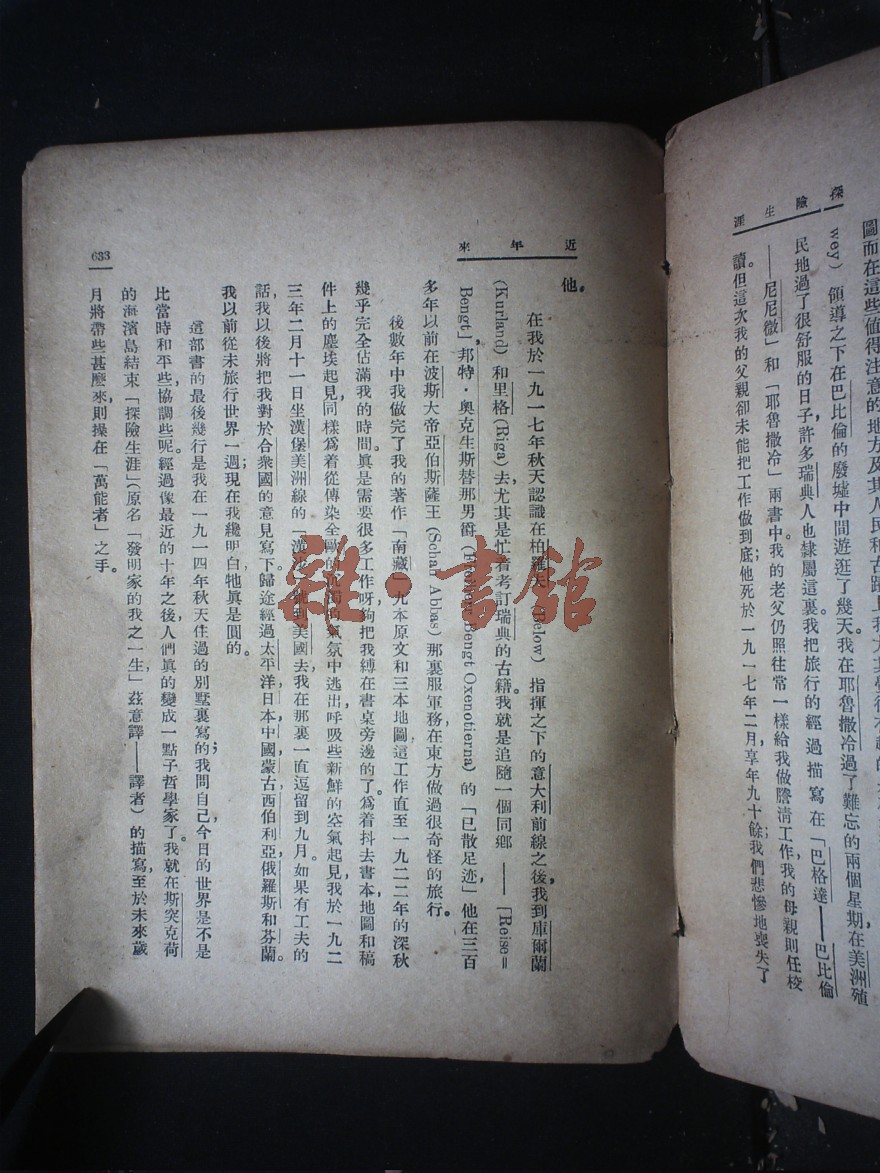 探險生涯
圖而在這些值得注意的地方及其人民和古蹟上
wey）領導之下在巴比倫的廢墟中間遊逛了幾天我在耶魯撒冷過了難忘的兩個星期在美洲殖
民地過了很舒服的日子，許多瑞典人也隸屬這裏。我把旅行的經過描寫在「巴格達——巴比倫
——尼尼微」和「耶魯撒冷」兩書中。我的老父仍照往常一樣給我做謄清工作，我的母親則任校
讀。但這次我的父親卻未能把工作做到底；他死於一九一七年二月，享年九十餘；我們悲慘地喪失了
近年來
他。
在我於一九一七年秋天認識在柏羅夫（Below）指揮之下的意大利前線之後，我到庫爾蘭
(Kurland) 和里格 (Riga) 去，尤其是忙着考訂瑞典的古籍。我就是追隨一個同鄉——「Reise=
Bengt」，邦特·奧克生斯替那男爵（Bengt Oxenotierna）的「已散足迹」，他在三百
多年以前在波斯大帝亞伯斯薩王 (Schah Abbas) 那裏服軍務，在東方做過很奇怪的旅行。
後數年中我做完了我的著作「南藏」九本原文和三本地圖，這工作直至一九二二年的深秋
幾乎完全佔滿我的時間。眞是需要很多工作呀，夠把我縛在書桌旁邊的了。爲着抖去書本地圖和稿
件上的塵埃起見，同樣爲着從傳染全歐的氣氛中逃出，呼吸些新鮮的空氣起見，我於一九二
三年二月十一日坐漢堡美洲線的「漢號到美國去，我在那裏一直逗留到九月。如果有工夫的
話，我以後將把我對於合衆國的意見寫下。歸途經過太平洋，日本，中國，蒙古，西伯利亞，俄羅斯和芬蘭。
我以前從未旅行世界一週；現在我纔明白牠眞是圓的。
這部書的最後幾行是我在一九一四年秋天住過的別墅裏寫的；我問自己，今日的世界是不是
比當時和平些，協調些呢。經過像最近的十年之後，人們眞的變成一點子哲學家了。我就在斯突克荷
的海濱島結束「探險生涯」（原名「發明家的我之一生」，茲意譯——譯者）的描寫，至於未來歲
月將帶些甚麼來，則操在「萬能者」之手。
633
雜·書館